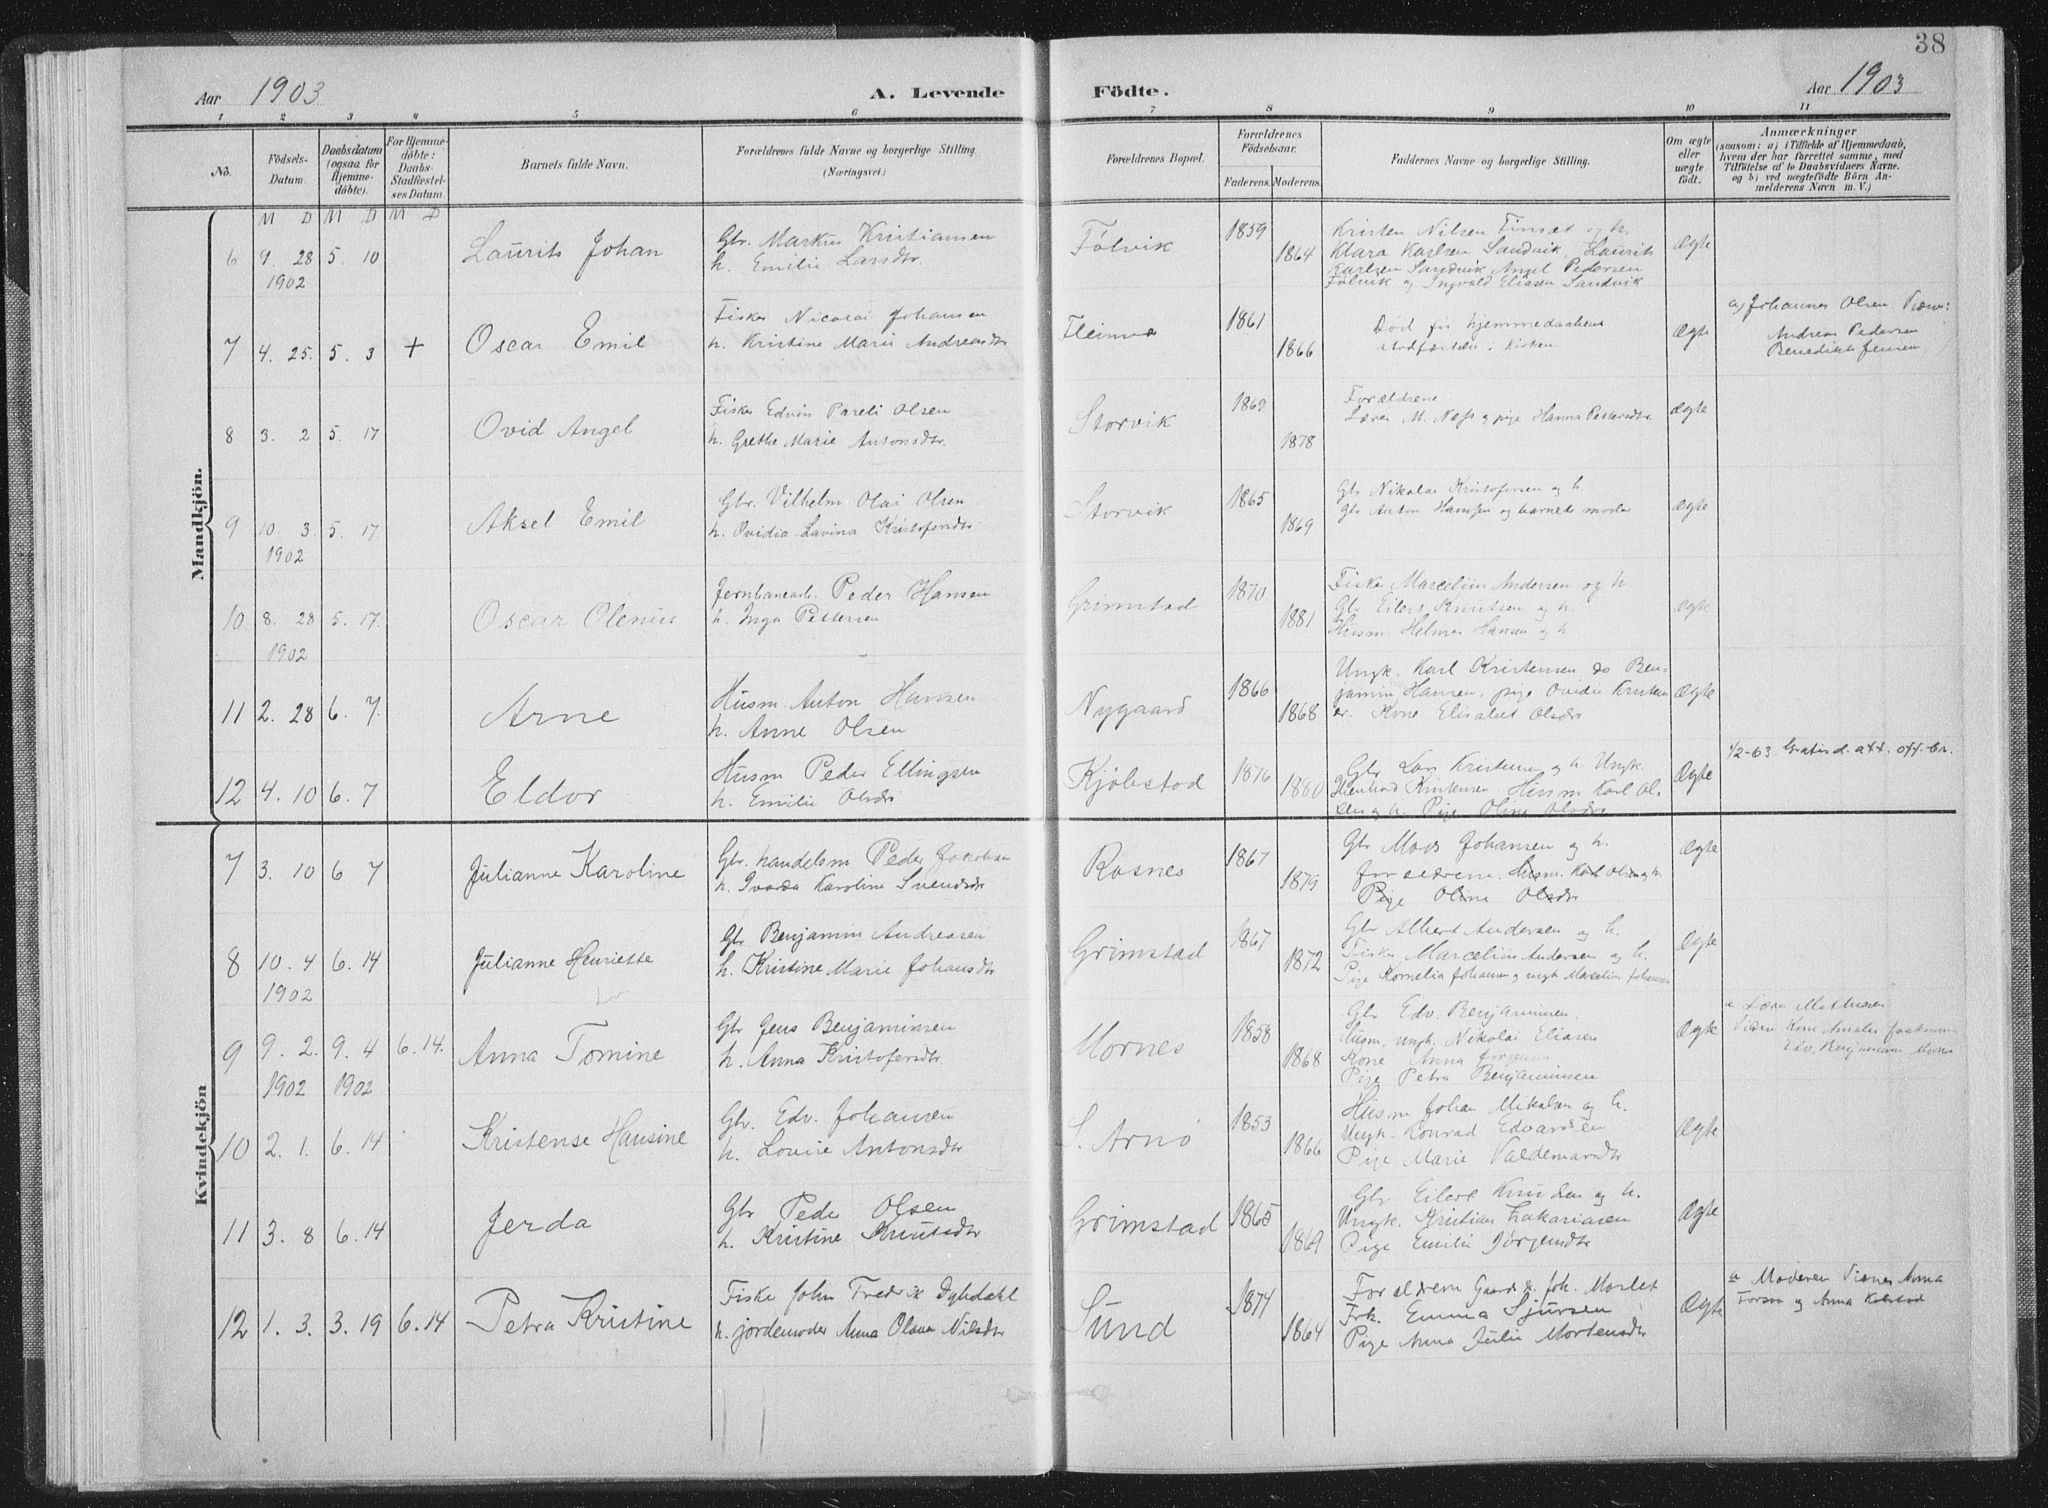 38
Aar 1903
A. Levende Födte.
Aar 1903
1 2 3 4 5 6 7 8 9 10 11
No.
Födsels-
Datum.
Daabsdatum
(ogsaa for
Hjemme-
döbte).
For Hjemme-
döbte:
Daabs-
Stadfæstel-
ses Datum.
Barnets fulde Navn.
Forældrenes fulde Navne og borgerlige Stilling.
(Næringsvei.)
Forældrenes Bopæl.
Forældrenes
Födselsaar.
Faderens. Moderens.
Faddernes Navne og borgerlige Stilling.
Om ægte
eller
uægte
födt.
Anmærkninger
(saasom: a) i Tilfælde af Hjemmedaab,
hvem der har forrettet samme, med
Tilföielse af to Daabsvidners Navne.
og b) ved uægtefödte Börn An-
melderens Navn m. V.)
M D M D M D
Mandkjön.
6 9. 28 5. 10 Laurits Johan
1902
Gbr. Markus Kristiansen
h. Emilie Larsdtr.
Følvik 1859 1864
Kristen Nilsen Finsæt og h.
Klara Karlsen Sandvik, Laurits
Karlsen Sandvik Angel Pedersen
Følvik og Ingvald Eliasen Sandvik
Ægte
7 4. 25. 5. 3 + Oscar Emil
Fisker Nicolai Johansen
h. Kristine Marie Andreasdtr
Fleinvæ 1861 1866
Død før hjemmedaabens
stadfæstelse i kirken
Ægte
a) Johannes Olsen Vidn:
Andreas Pedersen
Benedikte Jensen
8 3. 2 5. 17 Ovid Angel
Fisker Edvin Pareli Olsen
h. Grethe Marie Antonsdtr.
Storvik 1869 1878
Forældrene
Lærer M. Næss og pige Hanna Pettersdtr.
Ægte
9 10. 3. 5. 17. Aksel Emil
1902
Gbr. Vilhelm Olai Olsen
h. Ovidia Lavina Kristofersdtr
Storvik 1865 1869
Gbr Nikolai Kristofersen og h.
Gbr Anton Hansen og barnets moder
Ægte
10 8. 28 5. 17. Oscar Olenius
1902
Jernbanearb. Peder Hansen
h. Inga Pettersen
Grimstad 1870 1881
Fisker Marcelius Andersen og h
Gbr Eilert Knutsen og h.
Husm. Helmer Hansen og h
Ægte
11 2. 28 6. 7. Arne
Husm. Anton Hansen
h. Anne Olsen
Nygaard 1866 1868
Ungk. Karl Kristensen do Ben-
jamin Hansen, pige Ovidie Kristen
Kone Elisabet Olsdtr
Ægte
12 4. 10 6. 7 Eldor
Husm Peder Ellingsen
h. Emilie Olsdtr
Kjøbstad 1876 1880
Gbr Lars Kristensen og h. Ungk.
Kristensen. Husm Karl Ol-
sen og h. Pige Oline Olsdtr
Ægte
1/2-63. Gratis d. att. off. br.
Kvindekjön
7 3. 10 6 7 Julianne Karoline
Gbr. handelsm Peder Jakobsen
h. Ivarda Karoline Svendsdtr
Røsnes 1867 1879
Gbr Mads Johansen og h.
forældrene. Husm. Karl Olsen og h.
Pige Oline Olsdtr
Ægte
8 10. 4 6. 14 Julianne Henriette
1902
Gbr Benjamin Andreasen
h. Kristine Marie Johansdtr
Grimstad 1867 1872
Gbr Albert Andersen og h.
Fisker Marcelius Andersen og h.
Pige Kornelia Johansen og ungk Marcelius Johansen
Ægte
9 9. 2. 9. 4 6. 14. Anna Tomine
1902 1902
Gbr Jens Benjaminsen
h. Anna Kristofersdtr.
Mornes 1858 1868
Gbr Edv. Benjaminsen,
Husm, ungk. Nikolai Eliasen
Kone Anna Jørgensen
Pige Petra Benjaminsen
Ægte
a Lærer Mathisen
Vidn Kone Amalie Jaakimsen
Edv. Benjaminsen Mornes
10 2. 1. 6. 14 Kristense Hansine
Gbr. Edv. Johansen
h. Lovise Antonsdtr
S. Arnø 1853 1866
Husm Johan Mikalsen og h.
Ungk. Konrad Edvardsen
Pige Marie Valdemarsdtr
Ægte
11 3. 8 6. 14 Jerda
Gbr Peder Olsen
h. Kristine Knutsdtr
Grimstad 1865 1869
Gbr Eilert Knudsen og h.
Ungk. Kristian Zakariasen
Pige Emilie Jørgensdtr
Ægte
12 1. 3. 3. 19 6. 14 Petra Kristine
Fisker John Fredrik Dybdahl
h. jordemoder Anna Olava Nilsdtr
Sund 1874 1864
Forældrene Gaardbr. Joh. Morlet
Frk. Emma Sjursen
Pige Anna Julie Mortensdtr
Ægte
a Moderen Vidner Anna
og Anna Kobstad